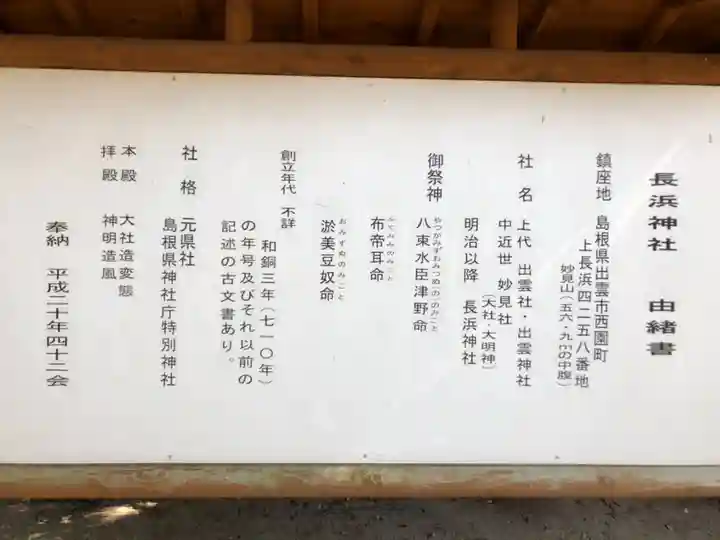 長浜神社　由緒書
鎮座地　島根県出雲市西園町
上長浜四二五八番地
妙見山（五六・九mの中腹）
社　名　上代　出雲社・出雲神社
中近世　妙見社
（大社・大明神）
明治以降　長浜神社
御祭神
やつかみずおみつぬ（の）のみこと
八束水臣津野命
ふてみみのみこと
布帝耳命
おみずぬのみこと
淤美豆奴命
創立年代　不詳
和銅三年（七一〇年）
の年号及びそれ以前の
記述の古文書あり。
社　格　元県社
島根県神社庁特別神社
本殿　大社造変態
拝殿　神明造風
奉納　平成二十年四十二会